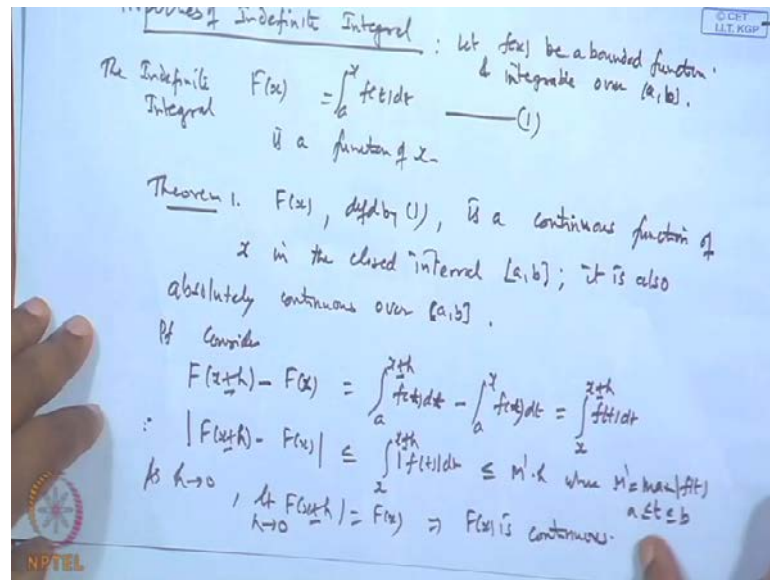 Properties of Indefinite Integral : Let f(x) be a bounded function
& integrable over [a,b].
© CET
I.I.T. KGP
The Indefinite Integral F(x) = ∫_a^x f(t)dt ——— (1)
is a function of x.
Theorem 1. F(x), defd by (1), is a continuous function of
x in the closed interval [a,b]; it is also
absolutely continuous over [a,b].
Pf Consider
F(x±h) - F(x) = ∫_a^{x±h} f(t)dt - ∫_a^x f(t)dt = ∫_x^{x±h} f(t)dt
∴ |F(x±h) - F(x)| ≤ ∫_x^{x±h} |f(t)|dt ≤ M'.h where M' = max |f(t)|
a ≤ t ≤ b
As h→0, lt_{h→0} F(x±h) = F(x) ⇒ F(x) is continuous.
NPTEL